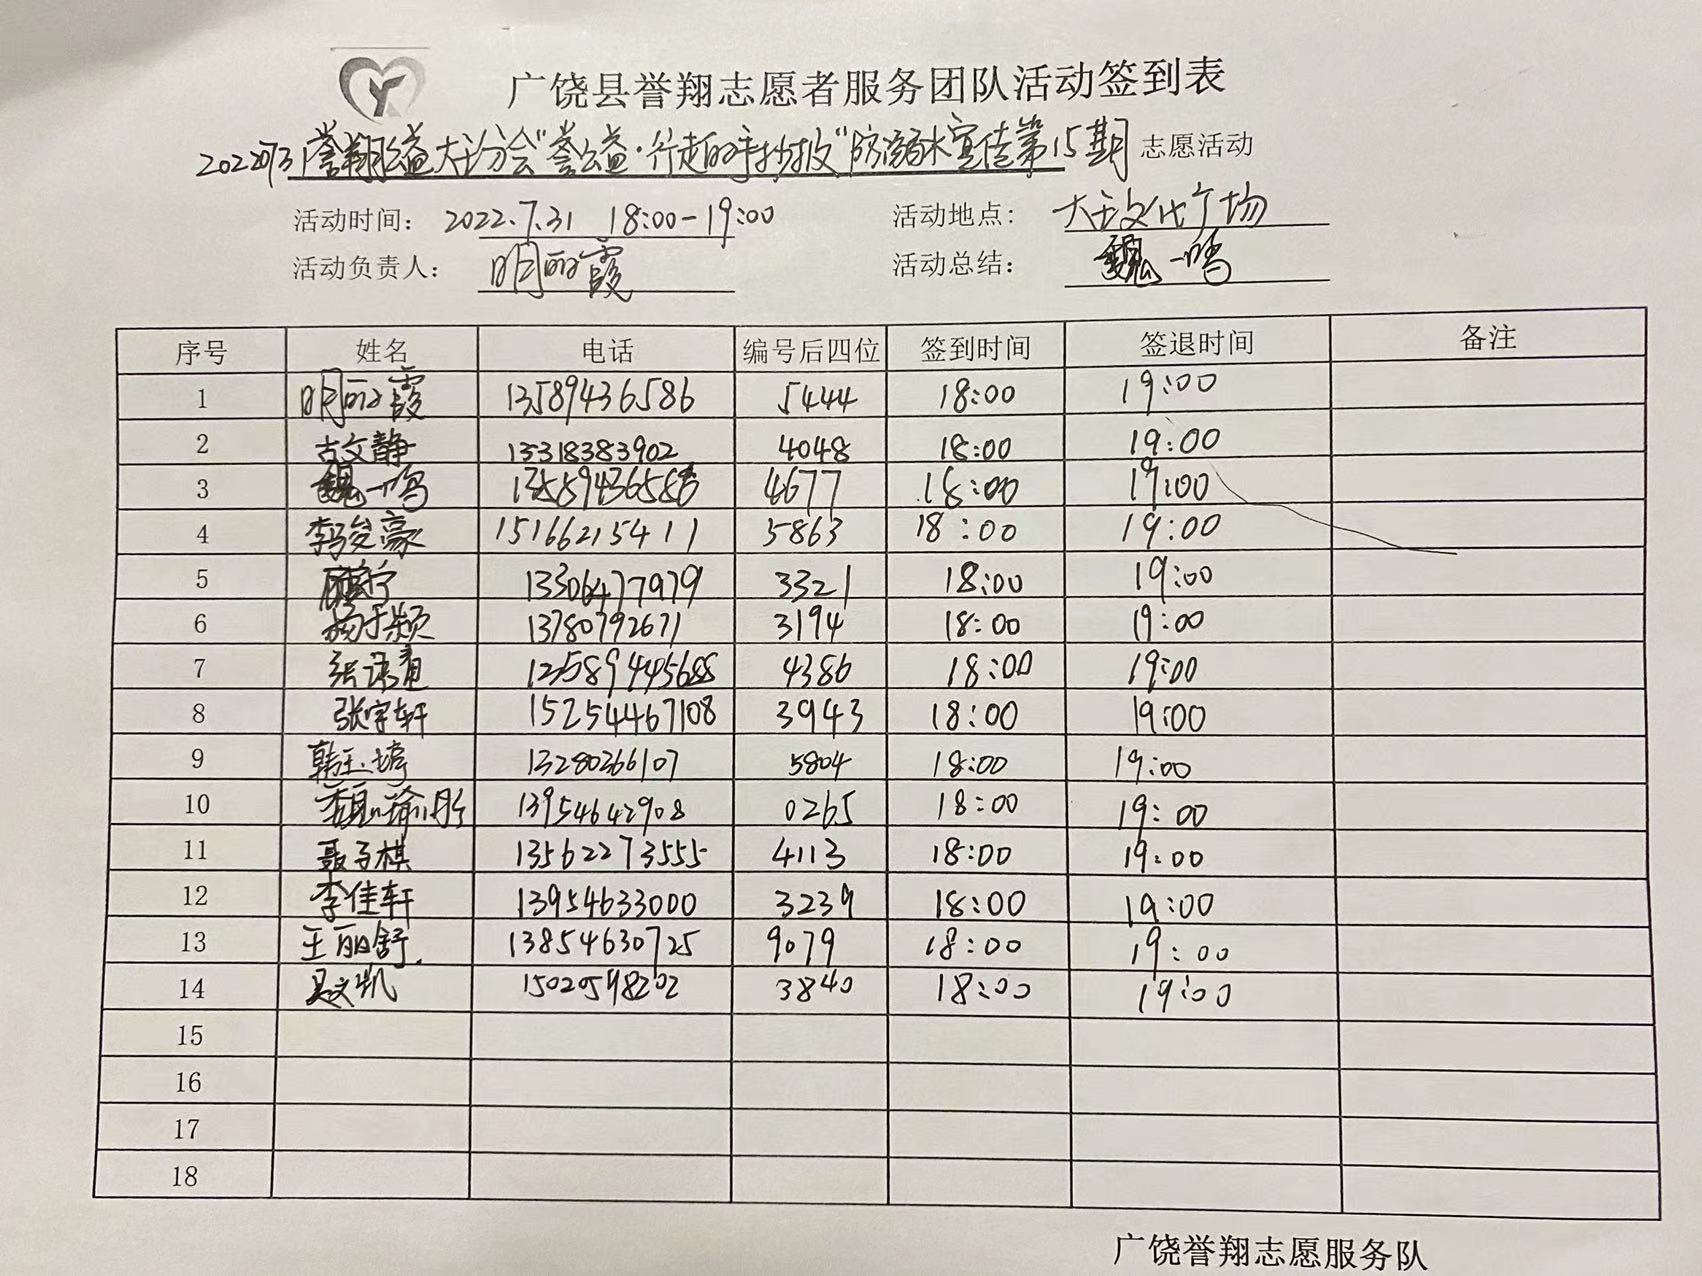 广饶县誉翔志愿者服务团队活动签到表
20220731誉翔公益大王分会"誉公益·行走的手抄报"防溺水宣传第15期 志愿活动
活动时间: 2022.7.31 18:00-19:00 活动地点: 大王文化广场
活动负责人: 明丽霞 活动总结: 魏一鸣
序号 姓名 电话 编号后四位 签到时间 签退时间 备注
1 明丽霞 13589436586 5444 18:00 19:00
2 古文静 13318383902 4048 18:00 19:00
3 魏一鸣 13589436586 4677 18:00 19:00
4 李俊豪 15166215411 5863 18:00 19:00
5 13306477979 3321 18:00 19:00
6 杨于颍 13780792671 3194 18:00 19:00
7 张语 4386 18:00 19:00
8 张宇轩 15254467108 3943 18:00 19:00
9 韩玉婷 13280266107 5804 18:00 19:00
10 13954642908 0265 18:00 19:00
11 聂子棋 13562273555 4113 18:00 19:00
12 李佳轩 13954633000 3239 18:00 19:00
13 王丽舒. 13854630725 9079 18:00 19:00
14 吴文凯 15020598202 3840 18:00 19:00
15
16
17
18
广饶誉翔志愿服务队